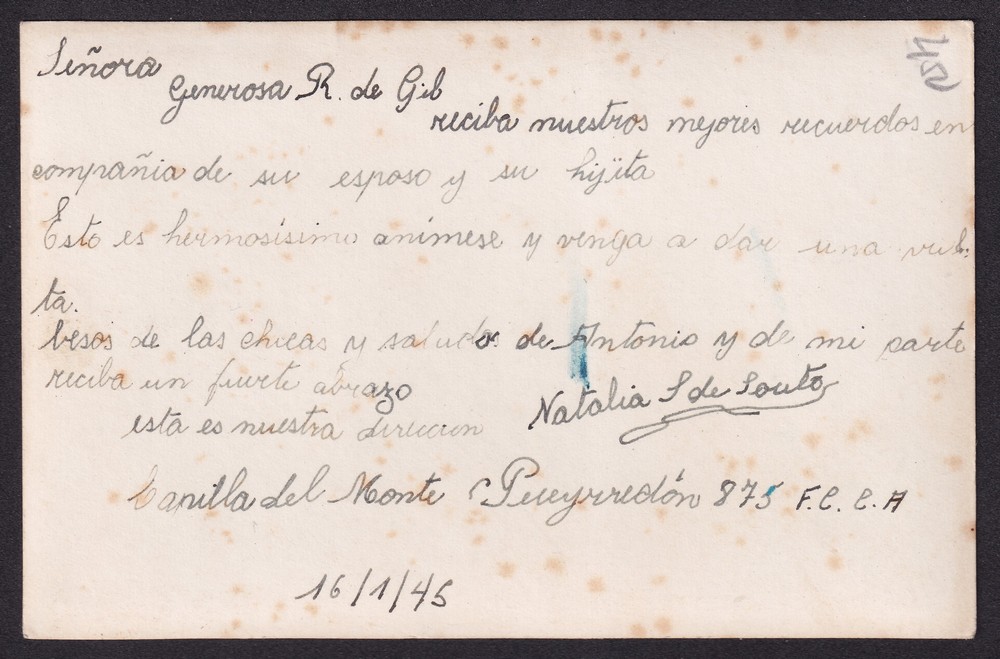 Señora
Generosa R. de Gil
reciba nuestros mejores recuerdos en
compañia de su esposo y su hijita
Esto es hermosísimo anímese y venga a dar una vuel-
ta.
besos de las chicas y saludos de Antonio y de mi parte
reciba un fuerte abrazo
Natalia S de Souto
esta es nuestra direccion
Canilla del Monte C Pueyrredón 875 F.C.C.A
16/1/45